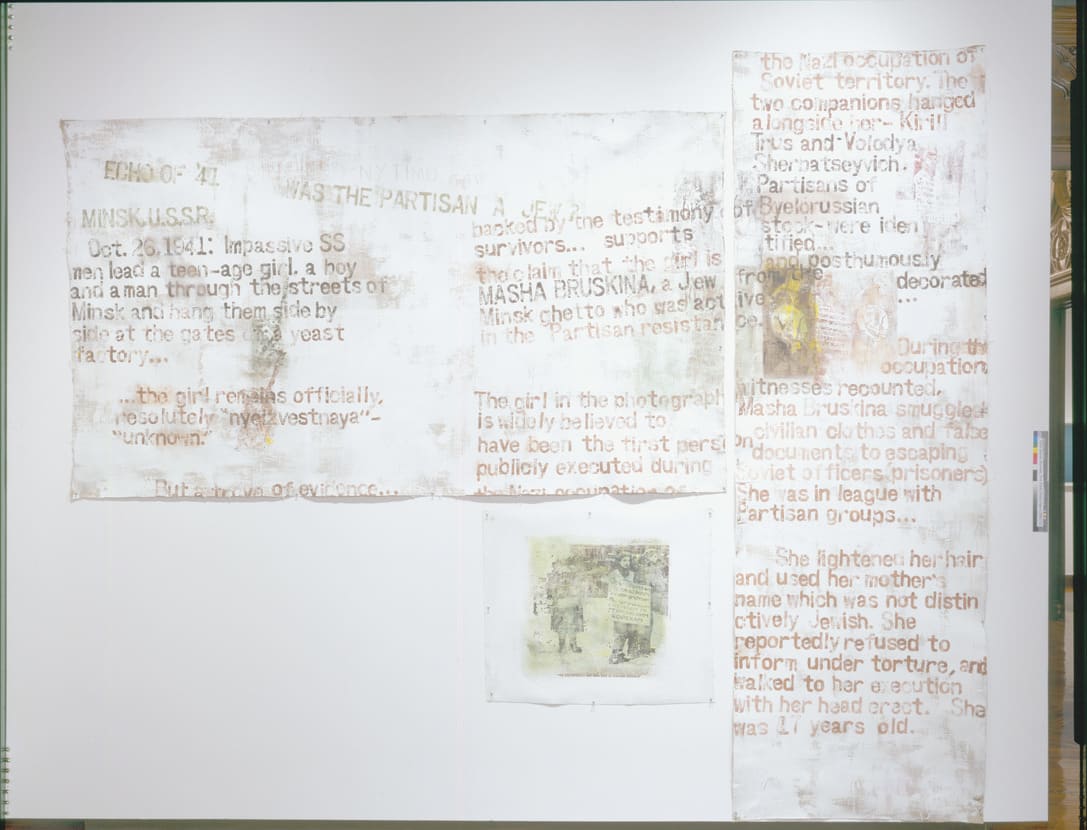 ECHO OF '41
NYTIMES
WAS THE PARTISAN A JEW?
MINSK.U.S.S.R.
Oct. 26,1941: Impassive SS
men lead a teen-age girl. a boy
and a man through the streets of
Minsk and hang them side by
side at the gates of a yeast
factory...
...the girl remains officially,
resolutely "nyeizvestnaya"-
"unknown."
But a trove of evidence...
backed by the testimony of
survivors... supports
the claim that the girl is
MASHA BRUSKINA, a Jew from the
Minsk ghetto who was active
in the Partisan resistance.
The girl in the photograph
is widely believed to
have been the first person
publicly executed during
the Nazi occupation of
the Nazi occupation of
Soviet territory. The
two companions hanged
alongside her- Kirill
Trus and Volodya
Sherbatseyvich.
Partisans of
Byelorussian
stock-were iden
tified...
and posthumously
decorated
...
During the
occupation
witnesses recounted,
Masha Bruskina smuggled
civilian clothes and false
documents to escaping
Soviet officers (prisoners)
She was in league with
Partisan groups...
She lightened her hair
and used her mother's
name which was not distin
ctively Jewish. She
reportedly refused to
inform under torture, and
walked to her execution
with her head erect. She
was 17 years old.